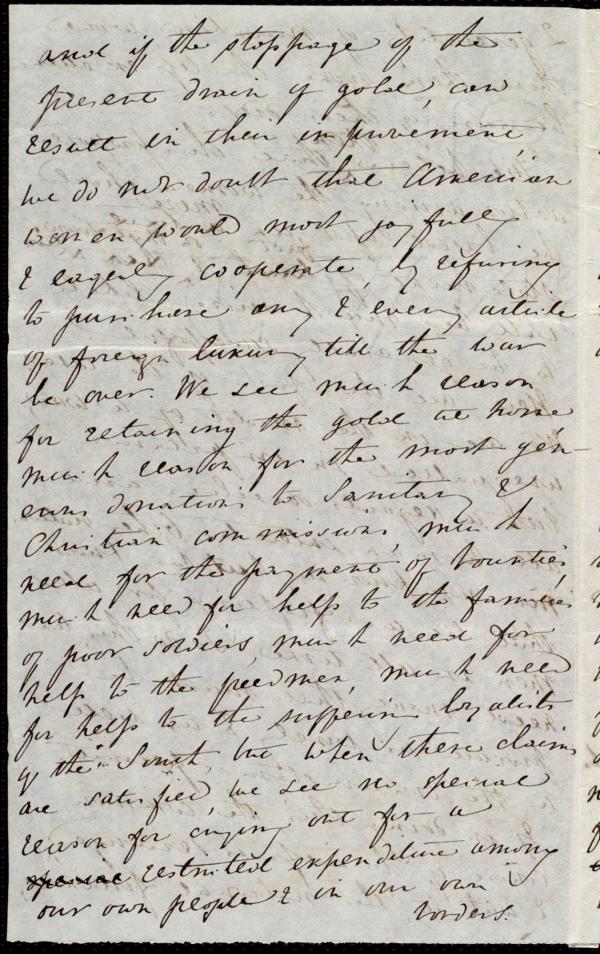 and if the stoppage of the
present drain of gold, can
result in their improvement,
we do not doubt that American
women would most joyfully
& eagerly cooperate, by refusing
to purchase any & every article
of foreign luxury till the war
be over. We see much reason
for retaining the gold at home
much reason for the most gen-
erous donations to Sanitary &
Christian commissions, much
need for the payment of bounties,
much need for help to the families
of poor soldiers, much need for
help to the freedmen, much need
for help to the suffering loyalists
of the South, but when these claims
are satisfied, we see no special
reason for crying out for a
special restricted expenditure among
our own people & in our own
borders.